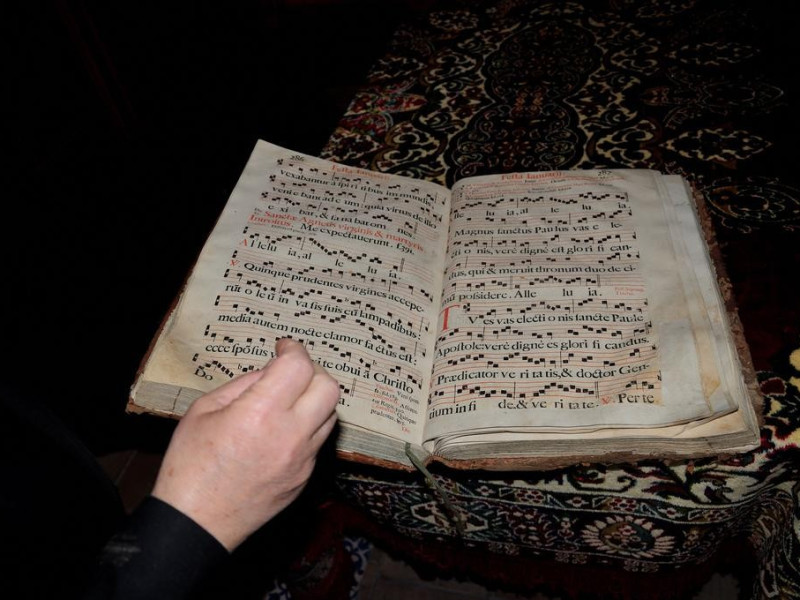 286
Festa Ianuarii.
vexabantur à spiritibus immundis
veniebant ad eum: quia virtus de illo
exibat, & sanabat omnes.
Sanctæ Agnetis virginis & martyris
Introitus. Me expectauerunt.
Alleluia, al le lu ia.
V. Quinque prudentes virgines accepe-
rūt o le ū in va sis suis cū lampadibus:
media autem nocte clamor fa ctus est:
ecce spōsus ve te obui ā Christo
Do
a.
Quinque
prudentes.
287
Festa Ianuarii
lle lu ia, al le lu ia
Magnus sanctus Paulus vas e le-
cti o nis, verè dignè est glori fi can-
dus, qui & meruit thronum duo de ci-
mū possidere. Alle lu ia.
TV es vas electi o nis sancte Paule
Apostole: verè dignè es glori fi candus.
Prædicator ve ri ta tis, & doctor Gen-
tium in fi de. & ve ri ta te. V. Per te